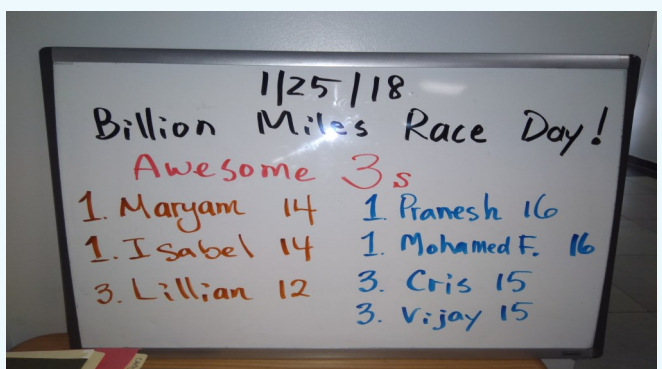 1/25/18
Billion Miles Race Day!
Awesome 3s
1. Maryam 14
1. Isabel 14
3. Lillian 12
1. Pranesh 16
1. Mohamed F. 16
3. Cris 15
3. Vijay 15